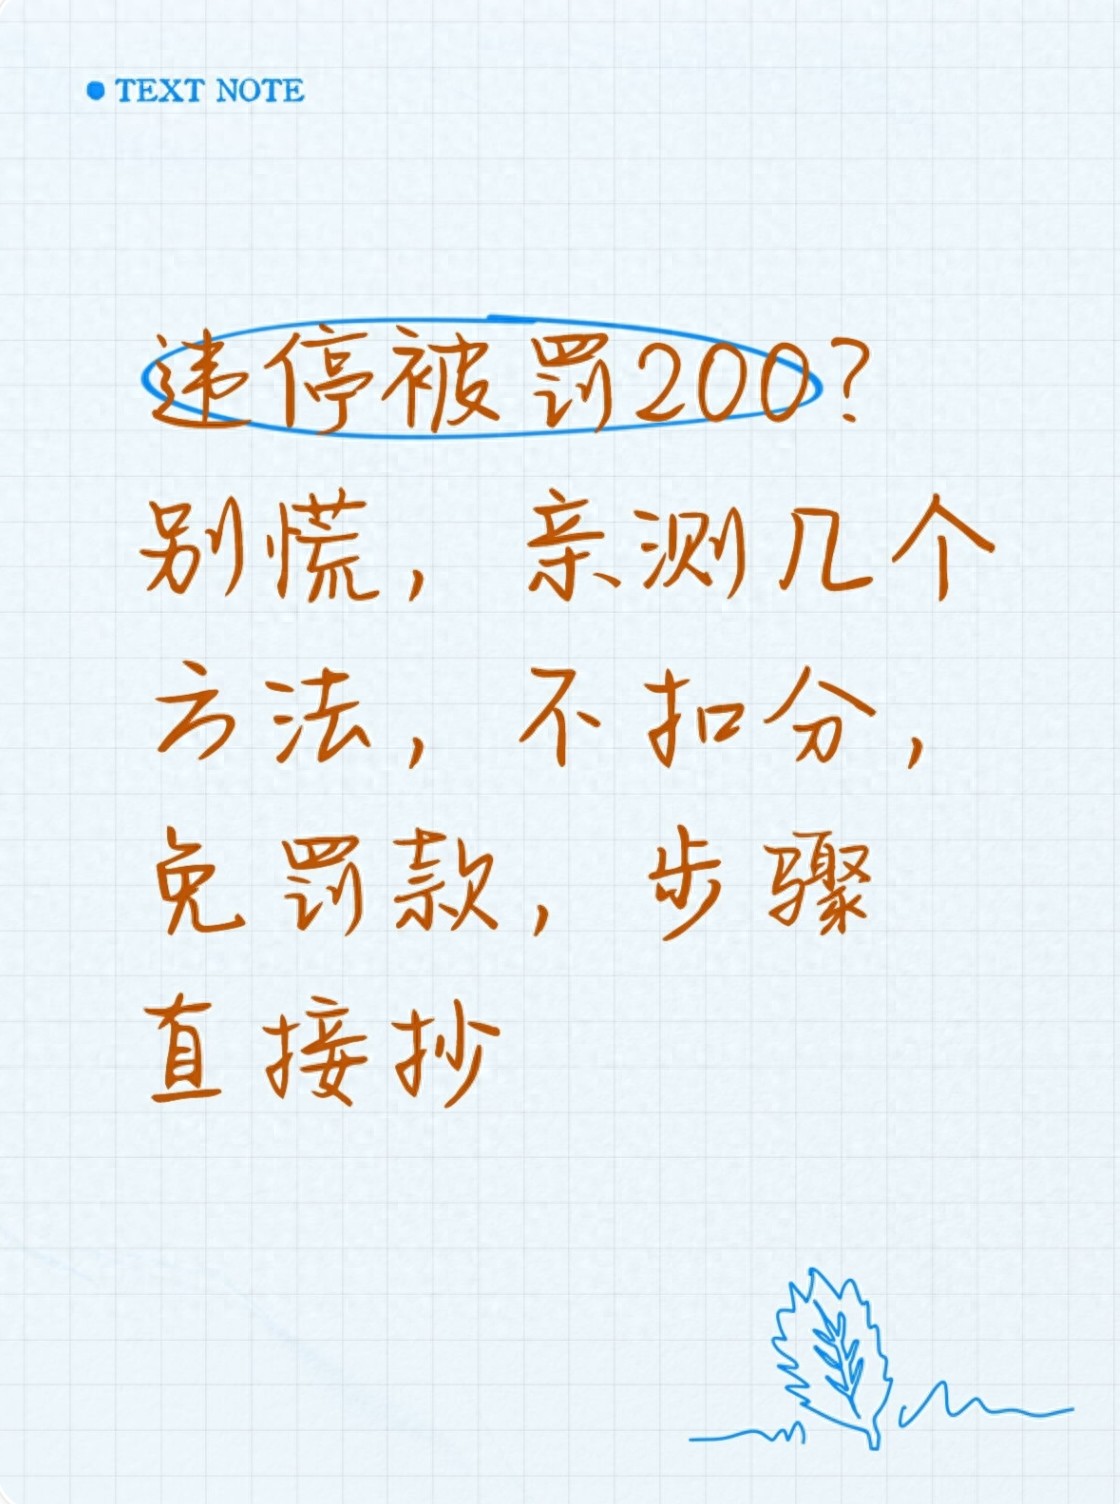 TEXT NOTE
违停被罚200?
别慌，亲测几个
方法，不扣分，
免罚款，步骤
直接抄